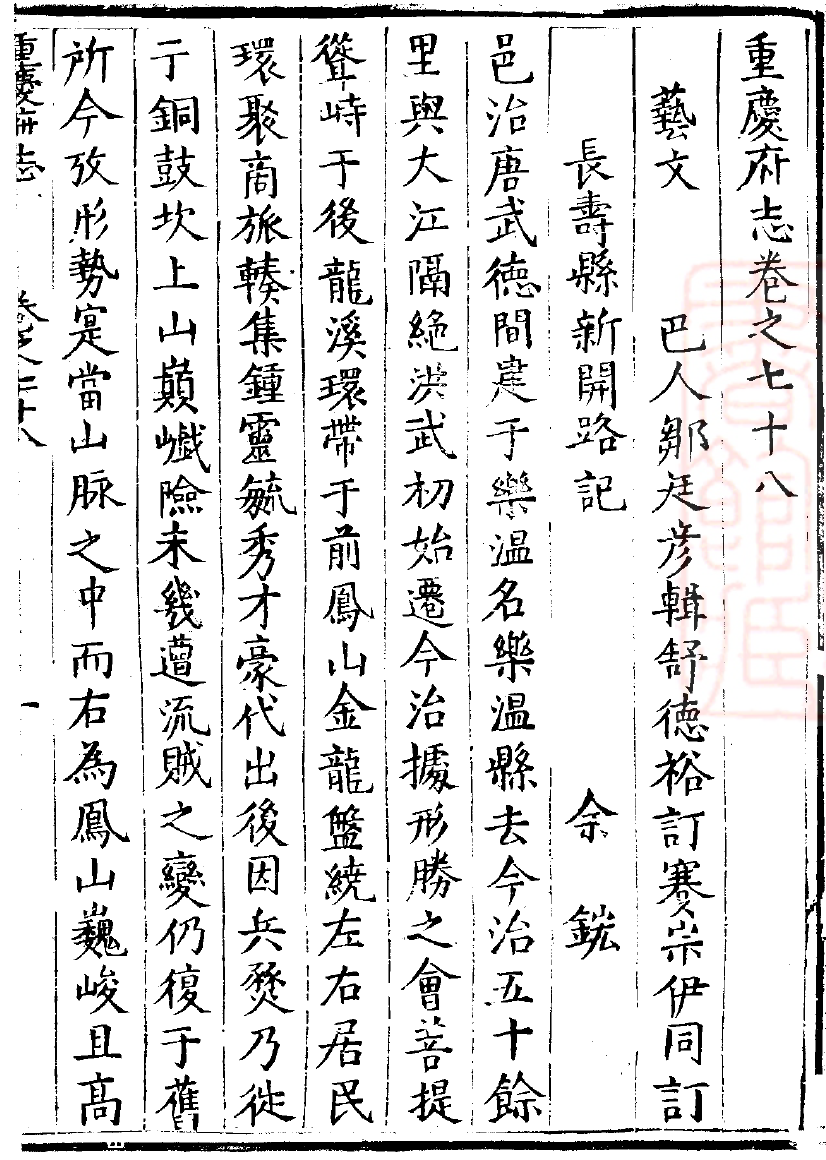 重慶府志卷之七十八
藝文 巴人鄒廷彥輯舒德裕訂蹇宗伊同訂
長壽縣新開路記 余鋐
邑治唐武德間建于樂溫名樂溫縣去今治五十餘
里與大江隔絶洪武初始遷今治據形勝之會菩提
聳峙于後龍溪環帶于前鳳山金龍盤繞左右居民
環聚商旅輳集鍾靈毓秀才豪代出後因兵燹乃徙
于銅鼓坎上山巔巇險未幾遭流賊之變仍復于舊
所今攷形勢寔當山脉之中而右為鳳山巍峻且高
重慶府志 卷之七十八 一